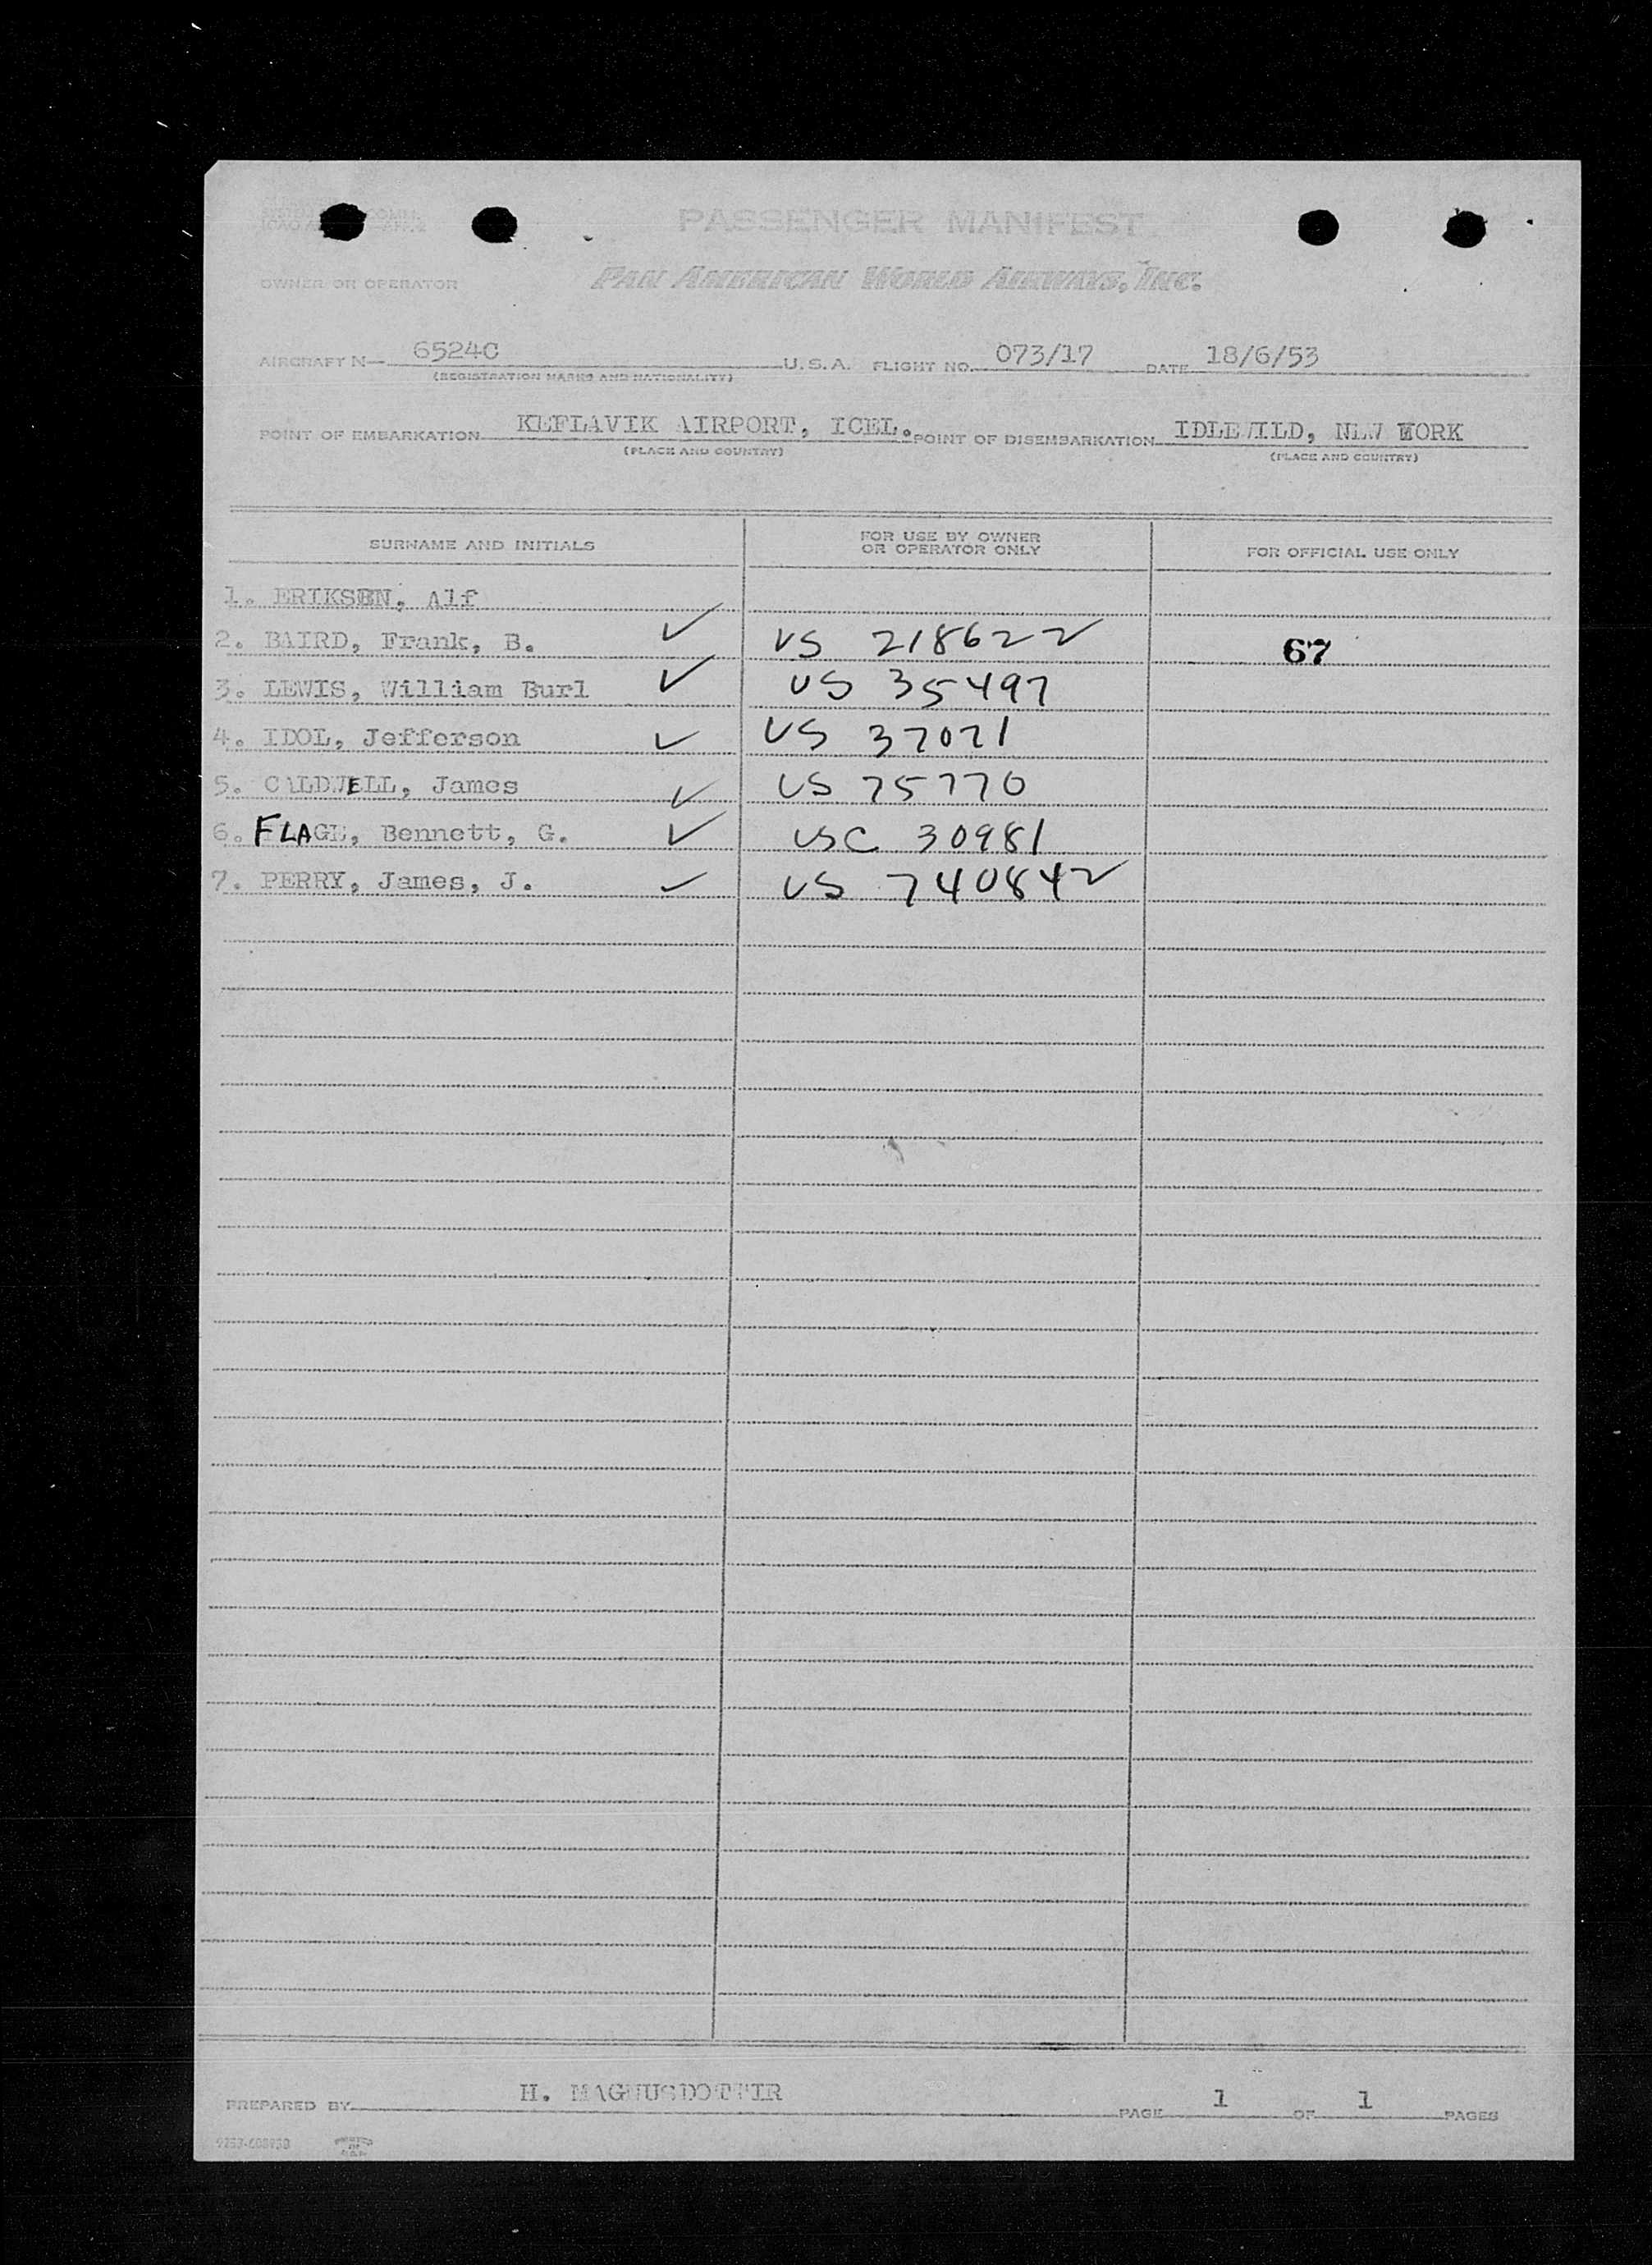 PASSENGER MANIFEST
OWNER OR OPERATOR PAN AMERICAN WORLD AIRWAYS, INC.
AIRCRAFT N— 6524C U.S.A. FLIGHT NO. 073/17 DATE 18/6/53
(REGISTRATION MARKS AND NATIONALITY)
POINT OF EMBARKATION KEFLAVIK AIRPORT, ICEL. POINT OF DISEMBARKATION IDLEWILD, NEW YORK
(PLACE AND COUNTRY) (PLACE AND COUNTRY)
SURNAME AND INITIALS FOR USE BY OWNER OR OPERATOR ONLY FOR OFFICIAL USE ONLY
1. ERIKSEN, Alf
2. BAIRD, Frank, B. ✓ US 218622 67
3. LEWIS, William Burl ✓ US 35497
4. IDOL, Jefferson ✓ US 37021
5. CALDWELL, James ✓ US 75770
6. FLAGE, Bennett, G. ✓ USC 30981
7. PERRY, James, J. ✓ US 740842
PREPARED BY H. MAGNUSDOTTIR PAGE 1 OF 1 PAGES